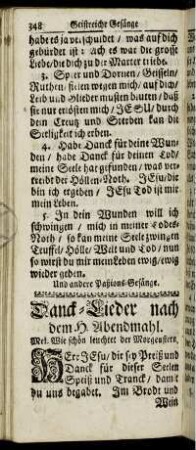 348 Geistreiche Gesänge
habe es ja verschuldet / was auf dich
gebürdet ist : Ach es war die grosse
Liebe / die dich zu der Marter triebe.
3. Speer und Dornen / Geisseln /
Ruthen / seien wegen mich / auf dich /
Leib und Glieder musten bluten / daß
sie nur erlösten mich / JESU / durch
dein Creutz und Sterben kan die
Seeligkeit ich erben.
4. Habe Danck für deine Wun-
den / habe Danck für deinen Tod /
meine Seele hat gefunden / was ver-
treibt der Höllen-Noth. JEsu / die
bin ich ergeben / JEsu Tod ist mir
mein Leben.
5. In dein Wunden will ich
schwingen / mich in meiner Todes-
Noth / so kan meine Seel zwingen
Teuffel / Hölle / Welt und Tod / nun
so wirst du mir mein Leben ewig / ewig
wieder geben.
Und andere Paßions-Gesänge.
Danck-Lieder nach
dem H. Abendmahl.
Mel. Wie schön leuchtet der Morgenstern.
HErr JEsu / dir sey Preiß und
Danck für dieser Seelen
Speiß und Tranck / damit
du uns begabet. Im Brodt und
Wein